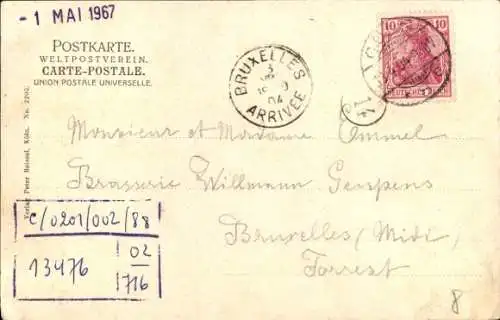 - 1 MAI 1967
POSTKARTE.
WELTPOSTVEREIN.
CARTE-POSTALE.
UNION POSTALE UNIVERSELLE.
10 10
BRUXELLES
3
04
ARRIVÉE
14
Monsieur et Madame Ommel
Brasserie Willmann Gerspens
Bruxelles (Midi)
Forrest
Verlag Peter Meinzel, Köln. No. 2202.
c/0201/002/88
13476
02
1716
8